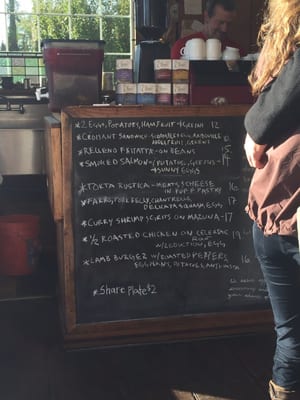 *2 EGGS, POTATOES, HAM, FRUIT + GREENS 12
*CROISSANT SANDWICH - SCRAMBLED EGG
FRUIT, GREENS
*RELLENO FRITATTA - ON BEANS 15
*SMOKED SALMON - W/ POTATO, 14
+ SUNNY EGGS
*TORTA RUSTICA - MEATS, CHEESE 16
IN PUFF PASTRY
*FARRO, PORK BELLY, CHANTRELLE, 17
DELICATA SQUASH, EGG
*CURRY SHRIMP + GRITS ON MAZUNA - 17
*½ ROASTED CHICKEN ON CELERIAC 19
W/ REDUCTION, EGG
*LAMB BURGER W/ ROASTED PEPPERS, 16
EGGPLANT, POTATOES,
*Share Plate $2